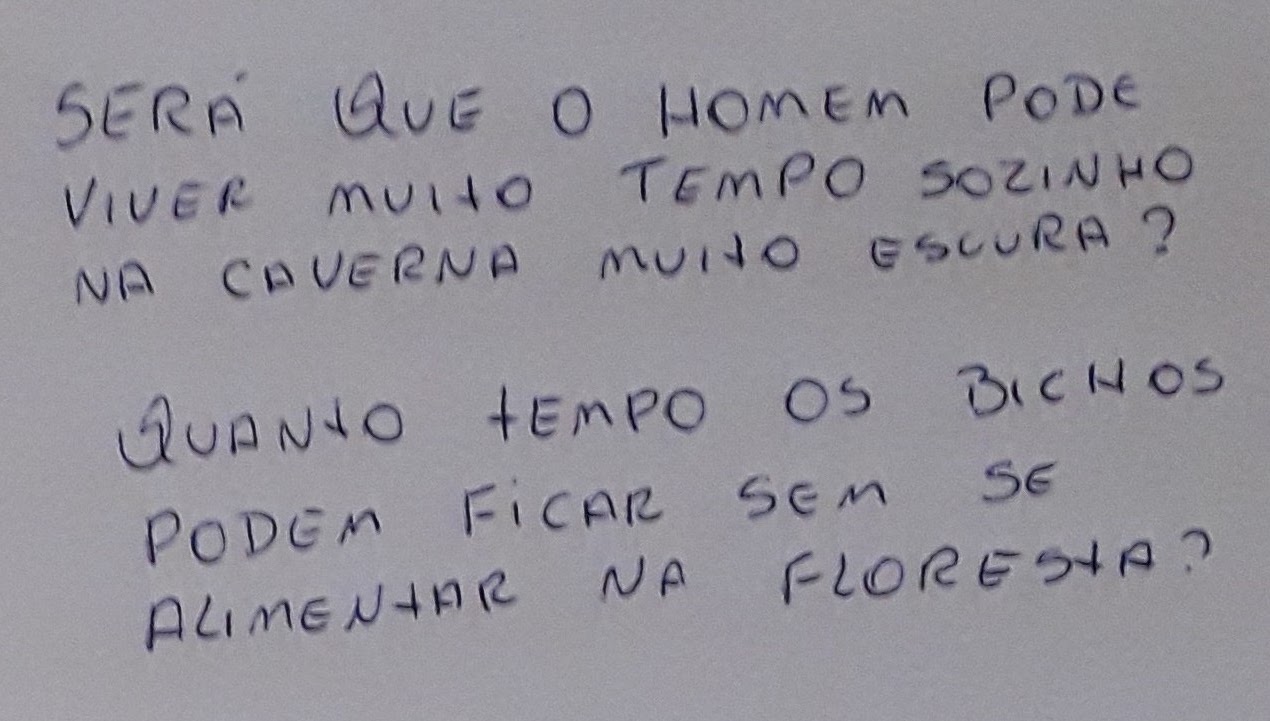 SERÁ QUE O HOMEM PODE
VIVER MUITO TEMPO SOZINHO
NA CAVERNA MUITO ESCURA?
QUANTO TEMPO OS BICHOS
PODEM FICAR SEM SE
ALIMENTAR NA FLORESTA?